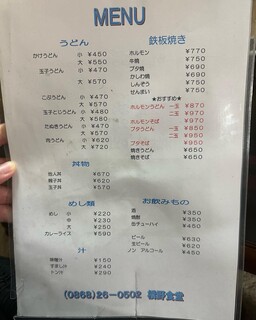 MENU
うどん
かけうどん 小 ¥450
大 ¥550
玉子うどん 小 ¥470
大 ¥570
こぶうどん 小 ¥470
大 ¥570
玉子とじうどん 小 ¥480
大 ¥580
たぬきうどん 小 ¥470
大 ¥570
肉うどん 小 ¥600
大 ¥700
丼物
他人丼 ¥670
親子丼 ¥620
玉子丼 ¥570
めし類
めし 小 ¥220
中 ¥230
大 ¥250
カレーライス ¥590
汁
味噌汁 ¥150
すまし汁 ¥240
トン汁 ¥290
鉄板焼き
ホルモン ¥770
牛焼 ¥750
ブタ焼 ¥690
かしわ焼 ¥690
しんぞう ¥750
せんまい ¥750
★おすすめ★
ホルモンうどん 一玉 ¥870
二玉 ¥970
ホルモンそば ¥970
ブタうどん 一玉 ¥850
二玉 ¥950
ブタそば ¥950
焼きうどん ¥650
焼きそば ¥650
お飲みもの
酒 ¥350
焼酎 ¥350
缶チューハイ ¥450
ビール ¥630
生ビール ¥620
ノン アルコール ¥450
(0868)26-0502 橋野食堂